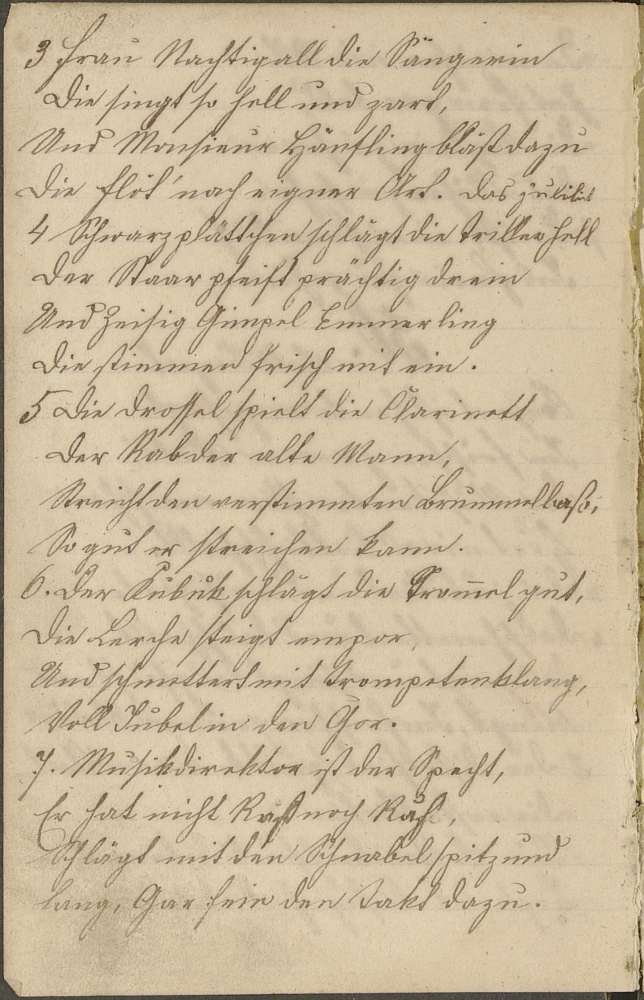 3 Frau Nachtigall die Sängerin
Die singt so hell und zart,
Und Monsieur Hänfling bläst dazu
Die Flöt' nach eigner Art. Das
4 Schwarzplättchen schlägt die Triller hell
Der Staar pfeift prächtig drein
Und Zeisig Gimpel Emmerling
Die stimmen frisch mit ein.
5 Die Drossel spielt die Clarinett
Der Rab der alte Mann,
Streicht den verstimmten Brummelbaß,
So gut er streichen kann.
6. Der Kukuk schlägt die Trom̄el gut,
Die Lerche steigt empor,
Und schmettert mit Trompetenklang,
Voll Jubel in den Chor.
7. Musikdirektor ist der Specht,
Er hat nicht Rast noch Ruh,
Schlägt mit den Schnabel spitz und
lang, Gar fein den Takt dazu.